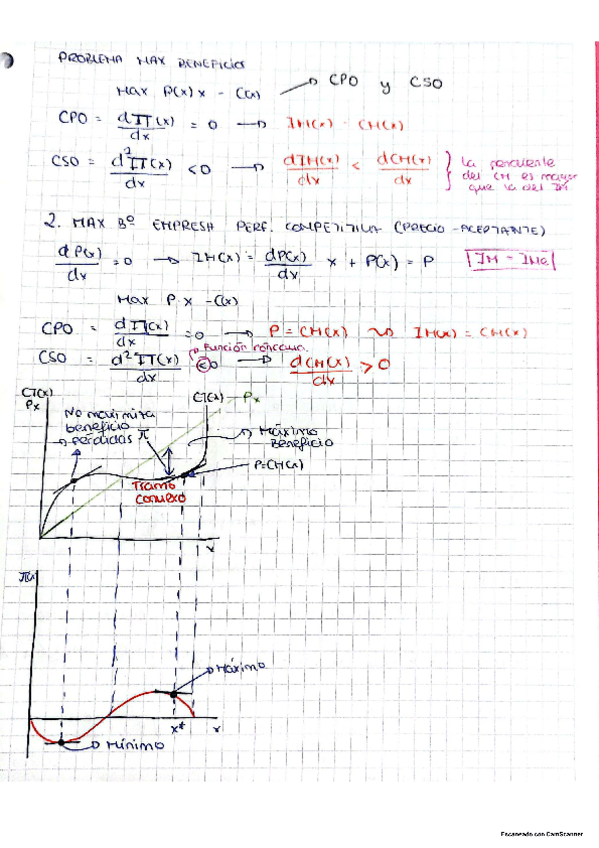 PROBLEMA MAX BENEFICIOS
Max P(x)x - C(x) → CPO y CSO
CPO = dΠ(x)/dx = 0 → IM(x) = CM(x)
CSO = d²Π(x)/dx < 0 → dIM(x)/dx < dCM(x)/dx } La pendiente del CM es mayor que la del IM
2. MAX Bº EMPRESA PERF. COMPETITIVA (PRECIO-ACEPTANTE)
dP(x)/dx = 0 → IM(x) = dP(x)/dx x + P(x) = P |IM = IMe|
Max P x - C(x)
CPO = dΠ(x)/dx = 0 → P = CM(x) ~> IM(x) = CM(x)
Función cóncava
CSO = d²Π(x)/dx < 0 → dCM(x)/dx > 0
CT(x)
Px
CT(x)
Px
No maximiza
beneficio
→ pérdidas
π
→ Máximo
Beneficio
P=CM(x)
Tramo
convexo
x
Π(x)
Máximo
x*
x
Mínimo
Escaneado con CamScanner